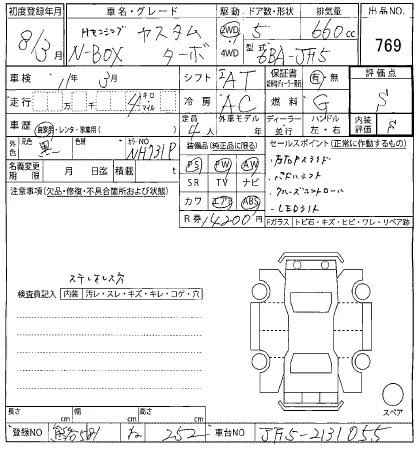 初度登録年月 車名・グレード 駆動 ドア数・形状 排気量 出品NO.
8/3月 N-BOX カスタム ターボ 2WD 4WD 5 660cc 769
型式 6BA-JH5
車検 11年3月 シフト IAT 保証書 有 無 評価点
走行 万 千 4 キロ マイル 冷房 AC 燃料 G S
車歴 自家用・レンタ・事業用( ) 定員 4人 外車モデル 年 ディーラー 並行 ハンドル 左・右 内装評価 S
外色 元色 黒 色替 カラーNO NH731P 装備品(純正品に限る) セールスポイント(正常に作動するもの)
名義変更期限 月 日迄 積載 t PS PW AW
SR TV ナビ
注意事項(欠品・修復・不具合箇所および状態) カワ エアB ABS
・LEDライト
R券 14200円 Fガラス トビ石・キズ・ヒビ・ワレ・リペア跡
ステレオレス穴
検査員記入 内装 汚レ・スレ・キズ・キレ・コゲ・穴
スペア
長さ cm 幅 cm 高さ cm
登録NO 581 252 車台NO JH5-2131055